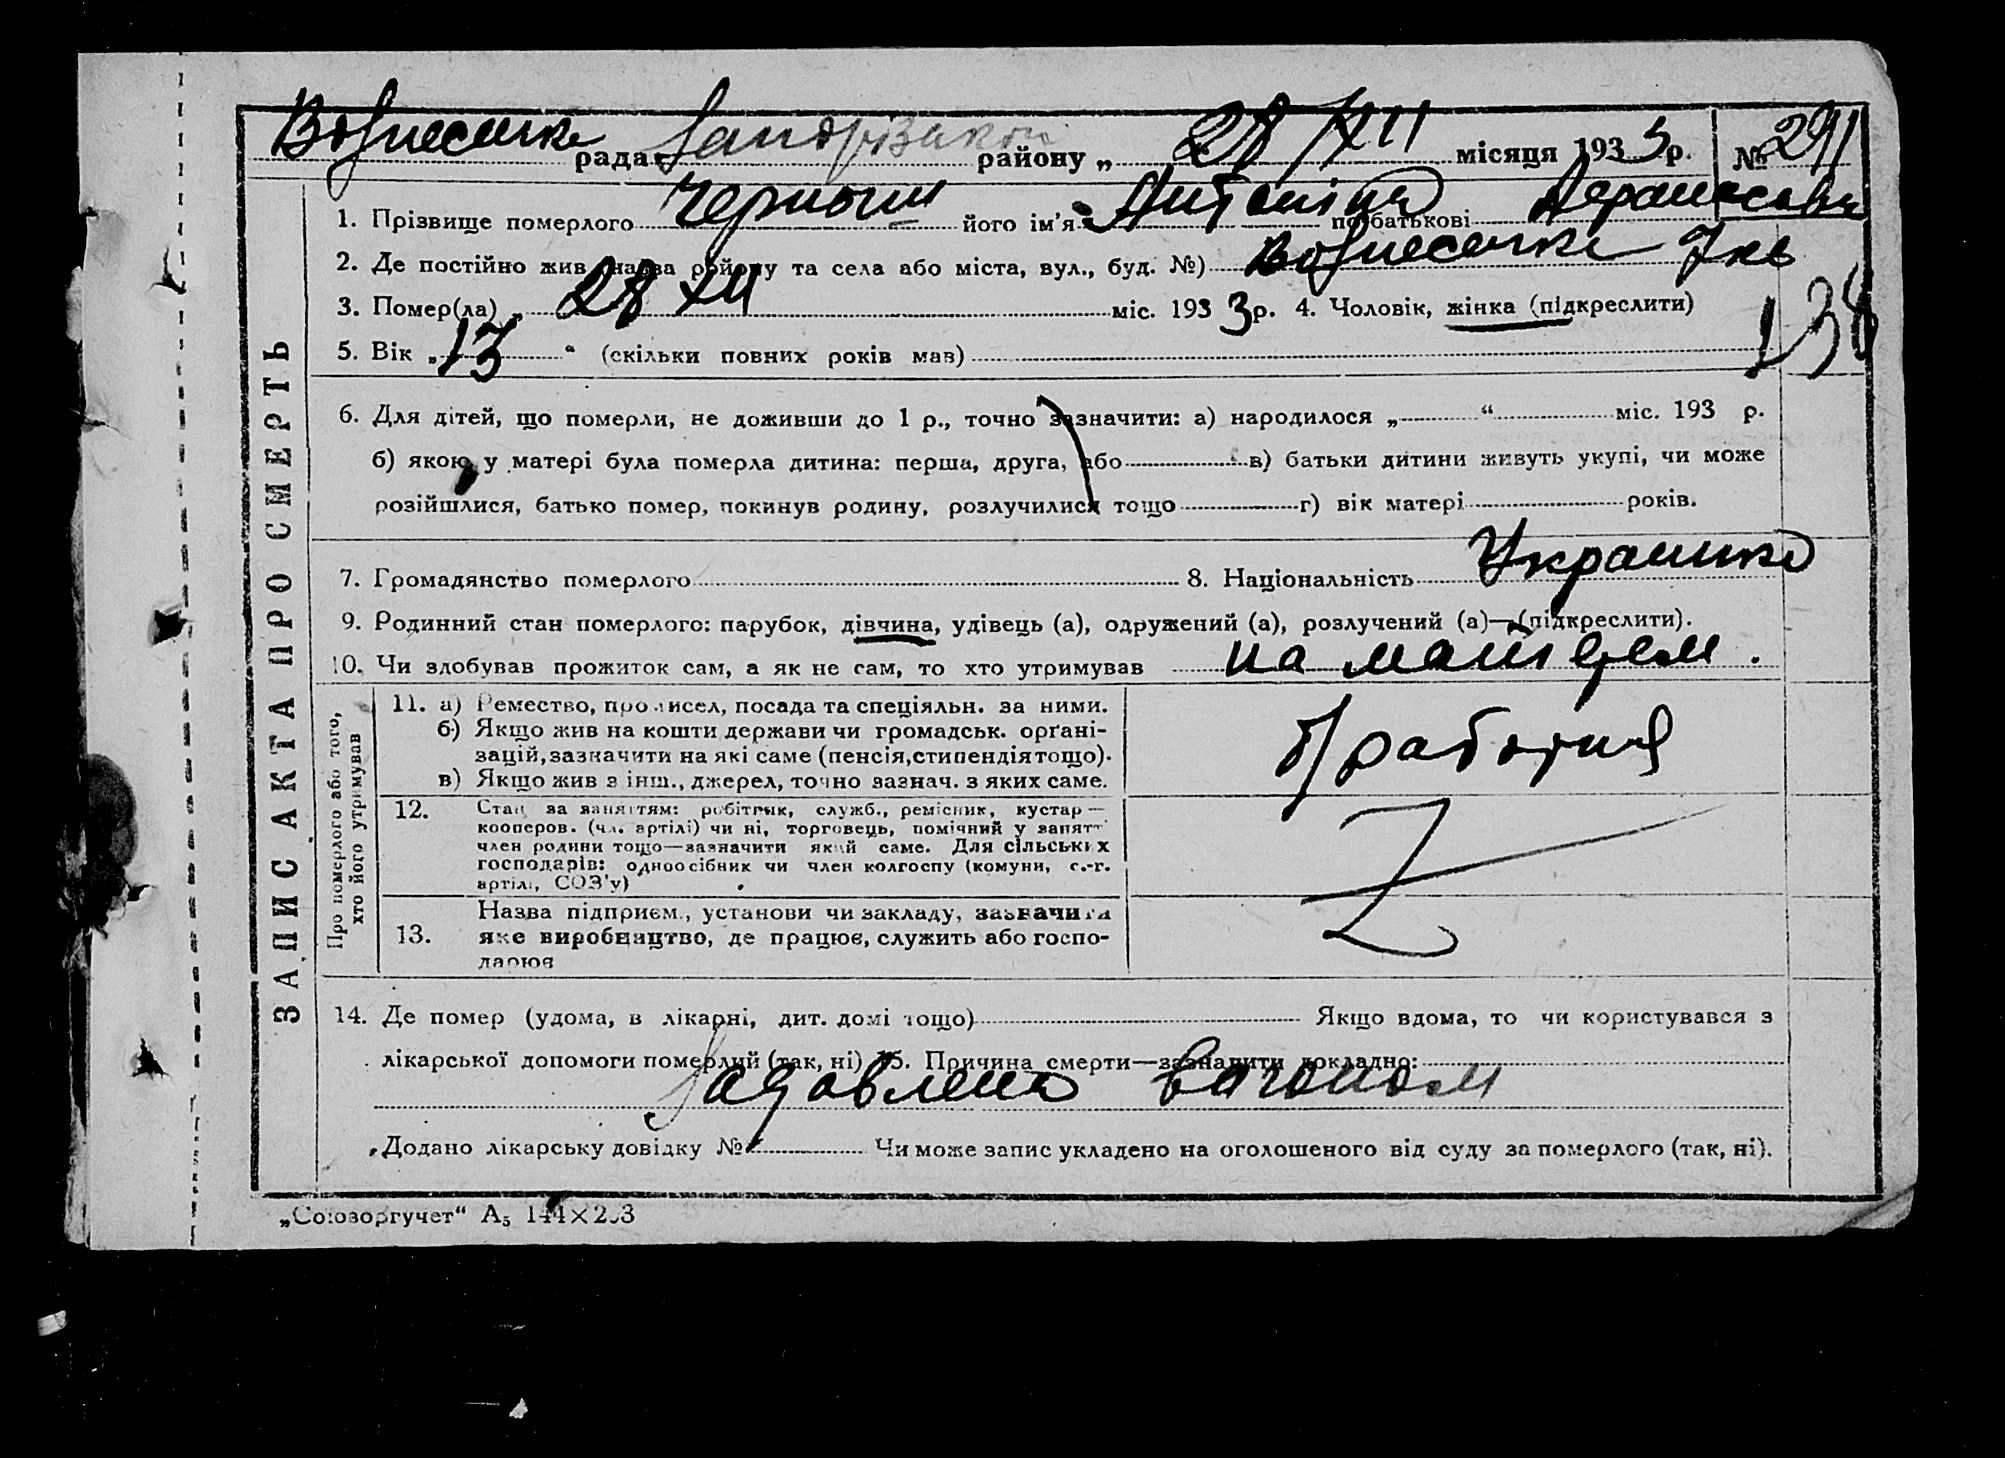 Вознесенка рада Запорізького району „ 28 XII місяця 1933 р. № 291
ЗАПИС АКТА ПРО СМЕРТЬ
1. Прізвище померлого його ім'я Антоніна по батькові
2. Де постійно жив (назва району та села або міста, вул., буд. №) Вознесенка
3. Помер(ла) „ 28 XII міс. 1933 р. 4. Чоловік, жінка (підкреслити)
138
5. Вік „ 13 “ (скільки повних років мав)
6. Для дітей, що померли, не доживши до 1 р., точно зазначити: а) народилося „ “ міс. 193 р.
б) якою у матері була померла дитина: перша, друга, або в) батьки дитини живуть укупі, чи може
розійшлися, батько помер, покинув родину, розлучилися тощо г) вік матері років.
7. Громадянство померлого 8. Національність Украинка
9. Родинний стан померлого: парубок, дівчина, удівець (а), одружений (а), розлучений (а)—(підкреслити).
10. Чи здобував прожиток сам, а як не сам, то хто утримував
Про померлого або того, хто його утримував
11. а) Ремество, промисел, посада та спеціяльн. за ними.
б) Якщо жив на кошти держави чи громадськ. орґані-
зацій, зазначити на які саме (пенсія, стипендія тощо).
в) Якщо жив з інш., джерел, точно зазнач. з яких саме.
12. Стан за заняттям: робітник, служб., ремісник, кустар —
кооперов. (чл. артілі) чи ні, торговець, помічний у занятт
член родини тощо—зазначити який саме. Для сільських
господарів: одноосібник чи член колгоспу (комуни, с.-г.
артілі, СОЗ'у)
13. Назва підприєм., установи чи закладу, зазначити
яке виробництво, де працює, служить або госпо-
дарює
14. Де помер (удома, в лікарні, дит. домі тощо) Якщо вдома, то чи користувався з
лікарської допомоги померлий (так, ні) 15. Причина смерти—зазначити докладно:
Задавлена вагоном
Додано лікарську довідку № Чи може запис укладено на оголошеного від суду за померлого (так, ні).
„Союзоргучет“ А₅ 144×203